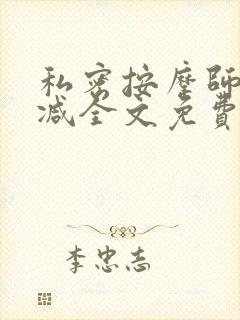 私密按摩師
减全文免費
李忠志